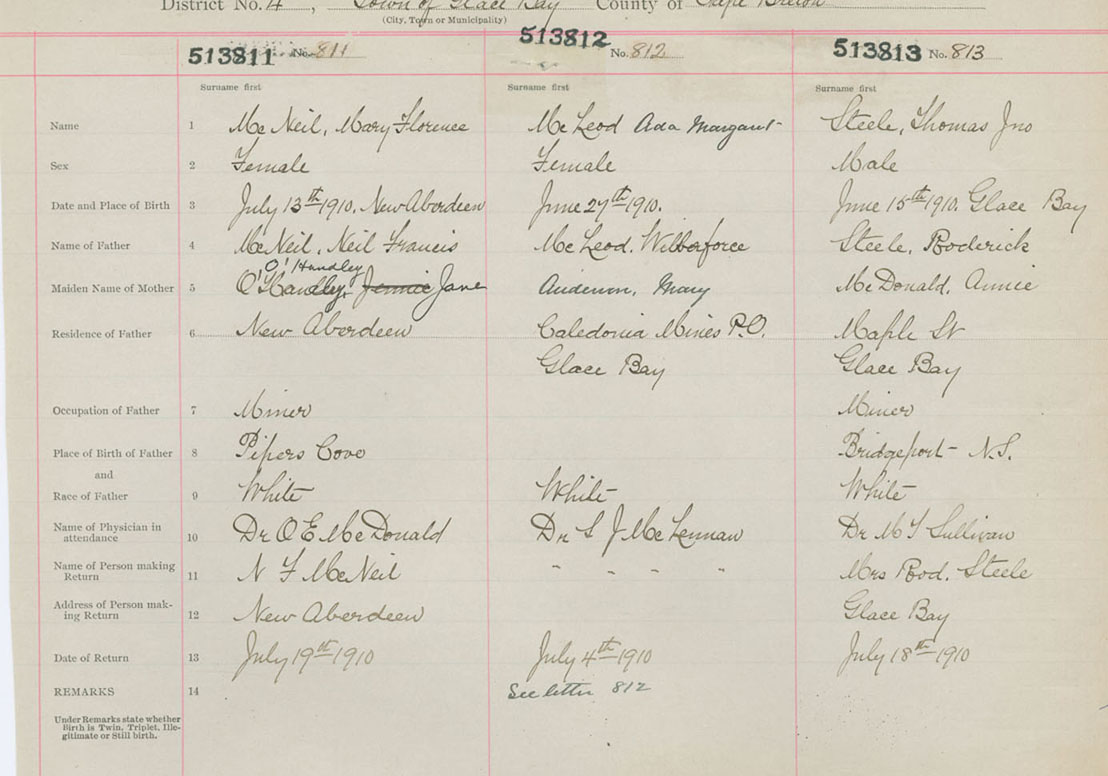 District No. 4, Town of Glace Bay County of Cape Breton
(City, Town or Municipality)
513811 No. 811 513812 No. 812 513813 No. 813
Surname first Surname first Surname first
Name 1 McNeil, Mary Florence McLeod Ada Margaret Steele, Thomas Jno
Sex 2 Female Female Male
Date and Place of Birth 3 July 13th 1910, New Aberdeen June 27th 1910. June 15th 1910. Glace Bay
Name of Father 4 McNeil, Neil Francis McLeod. Wilberforce Steele, Roderick
O'Handley
Maiden Name of Mother 5 O'Handley, Jennie Jane Anderson, Mary McDonald, Annie
Residence of Father 6 New Aberdeen Caledonia Mines P.O. Maple St
Glace Bay Glace Bay
Occupation of Father 7 Miner Miner
Place of Birth of Father 8 Pipers Cove Bridgeport - N.S.
and
Race of Father 9 White White White
Name of Physician in
attendance 10 Dr O E McDonald Dr S J McLennan Dr M T Sullivan
Name of Person making
Return 11 N F McNeil " " " " Mrs Rod. Steele
Address of Person mak-
ing Return 12 New Aberdeen Glace Bay
Date of Return 13 July 19th 1910 July 4th 1910 July 18th 1910
REMARKS 14 See letter 812
Under Remarks state whether
Birth is Twin, Triplet, Ille-
gitimate or Still birth.